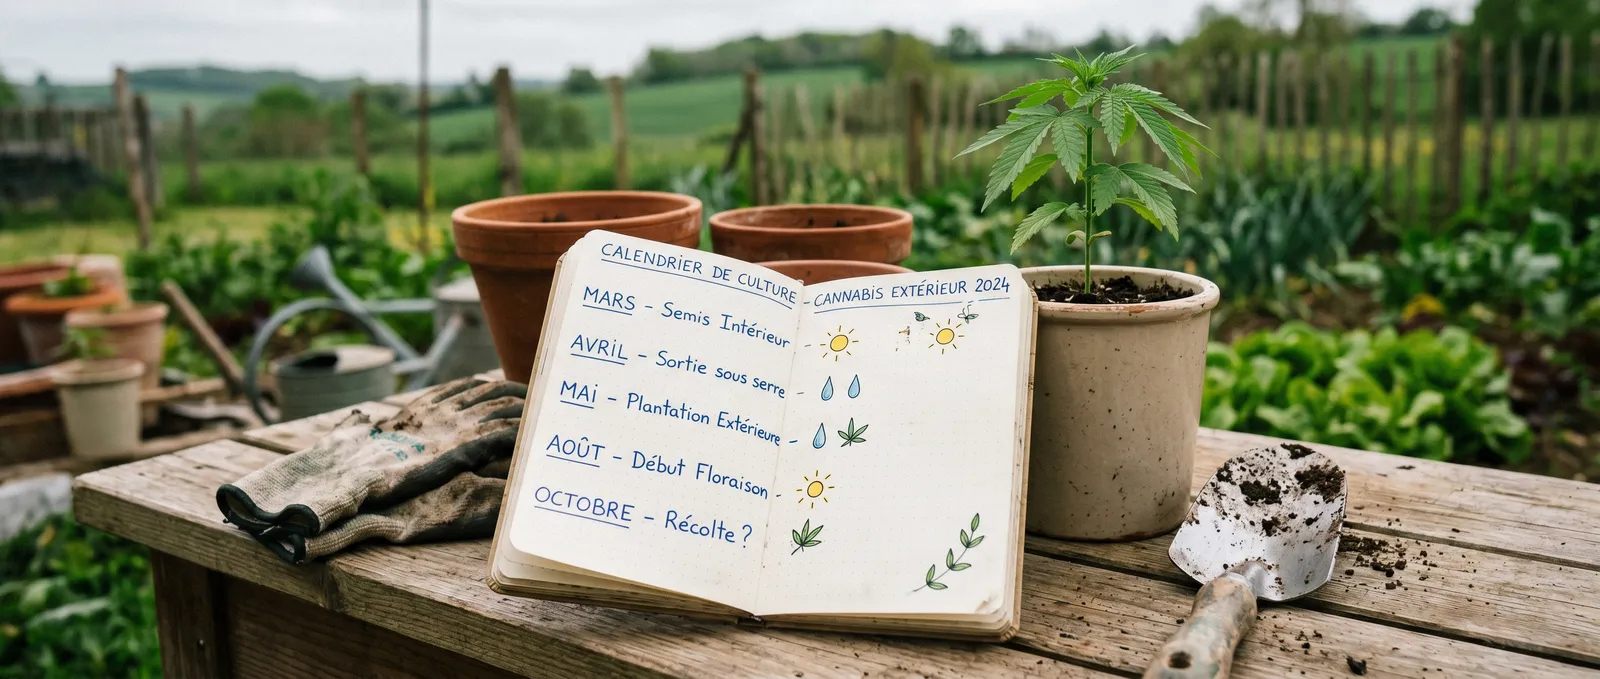 CALENDRIER DE CULTURE - CANNABIS EXTÉRIEUR 2024
MARS - Semis Intérieur
AVRIL - Sortie sous serre
MAI - Plantation Extérieure
AOÛT - Début Floraison
OCTOBRE - Récolte ?